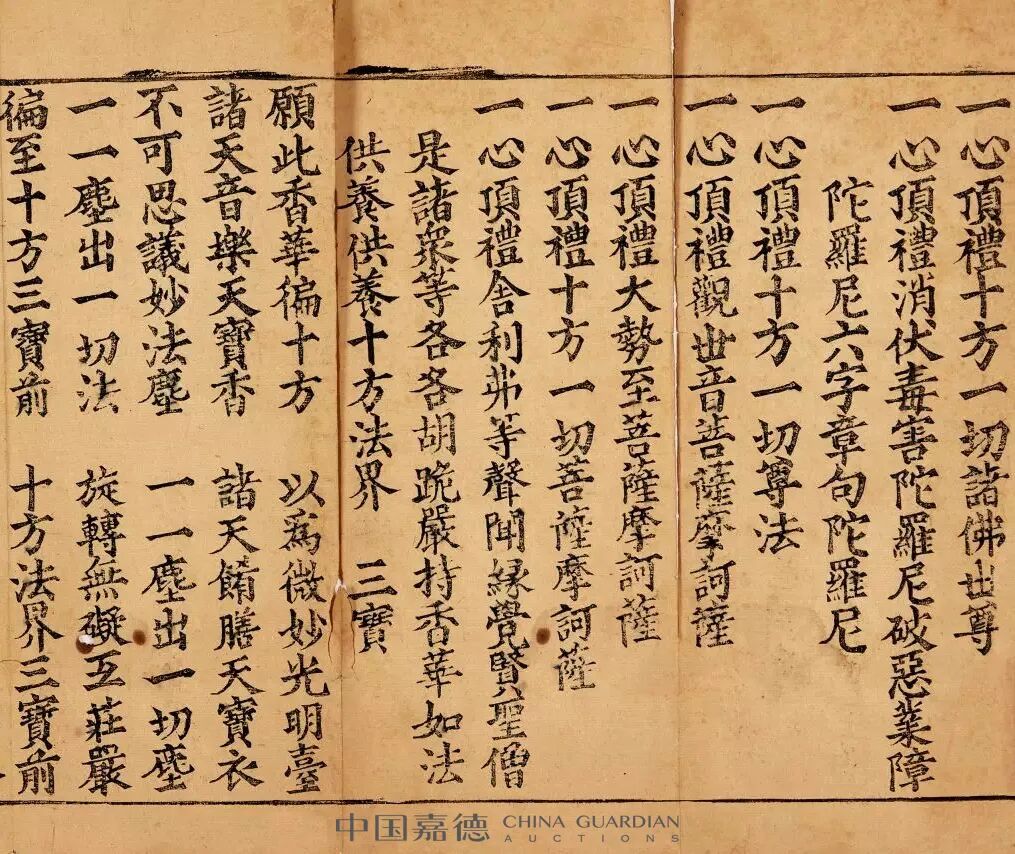 一心頂禮十方一切諸佛世尊
一心頂禮消伏毒害陀羅尼破惡業障
陀羅尼六字章句陀羅尼
一心頂禮十方一切尊法
一心頂禮觀世音菩薩摩訶薩
一心頂禮大勢至菩薩摩訶薩
一心頂禮十方一切菩薩摩訶薩
一心頂禮舍利弗等聲聞緣覺賢聖僧
是諸眾等各各胡跪嚴持香華如法
供養供養十方法界 三寶
願此香華徧十方 以為微妙光明臺
諸天音樂天寶香 諸天餚膳天寶衣
不可思議妙法塵 一一塵出一切塵
一一塵出一切法 旋轉無礙互莊嚴
徧至十方三寶前 十方法界三寶前
中国嘉德 CHINA GUARDIAN
AUCTIONS